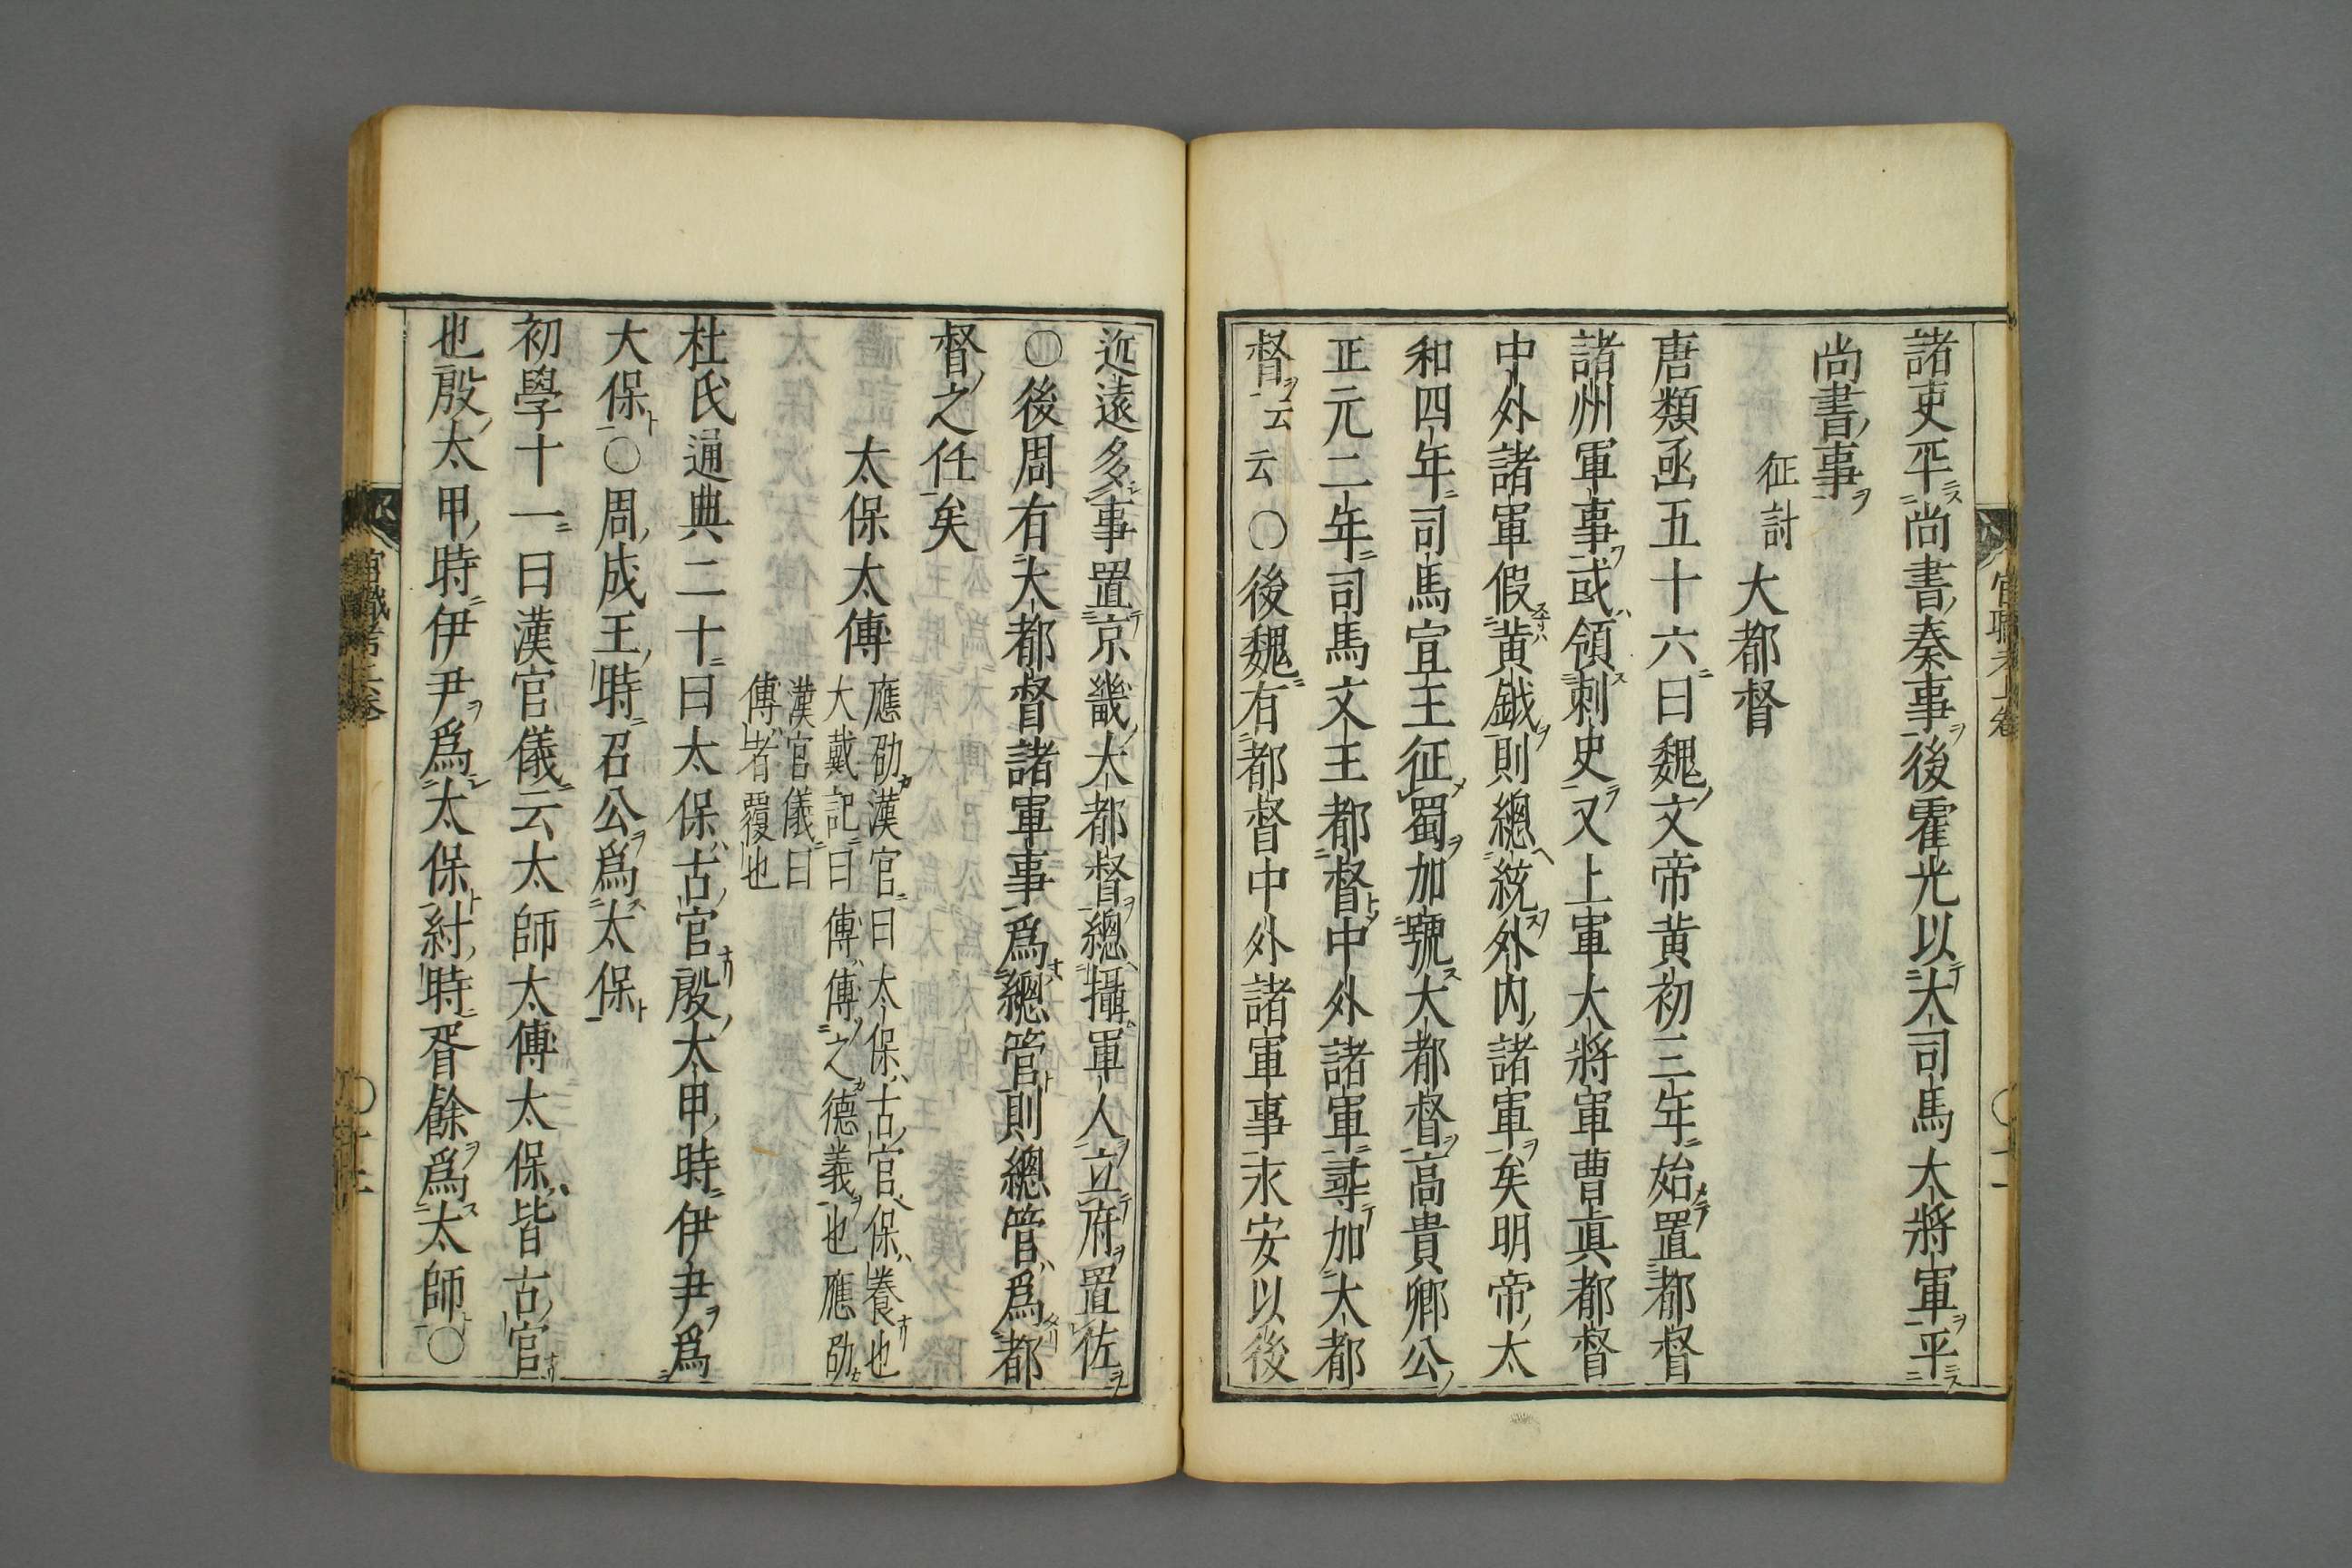 諸吏平尚書秦事後霍光以大司馬大將軍平
尚書事
征討大都督
唐類函五十六曰魏文帝黄初三年始置都督
諸州軍事或領刺史又上軍大將軍曹真都督
中外諸軍假黄鉞則總統外内諸軍矣明帝太
和四年司馬宣王征蜀加號大都督高貴卿公
正元二年司馬文王都督中外諸軍尋加大都
督云云〇後魏有都督中外諸軍事永安以後
近遠多事置京畿大都督總攝軍人立府置佐
〇後周有大都督諸軍事爲總管則總管爲都
督之任矣
太保太傅
應劭漢官曰太保古官保養也
大戴記曰傅傅之德義也應劭
漢官儀曰
傅者覆也
杜氏通典二十曰太保古官殷太甲時伊尹爲
大保〇周成王時召公爲太保
初學十一曰漢官儀云太師太傅太保皆古官
也殷太甲時伊尹爲太保紂時胥餘爲太師〇